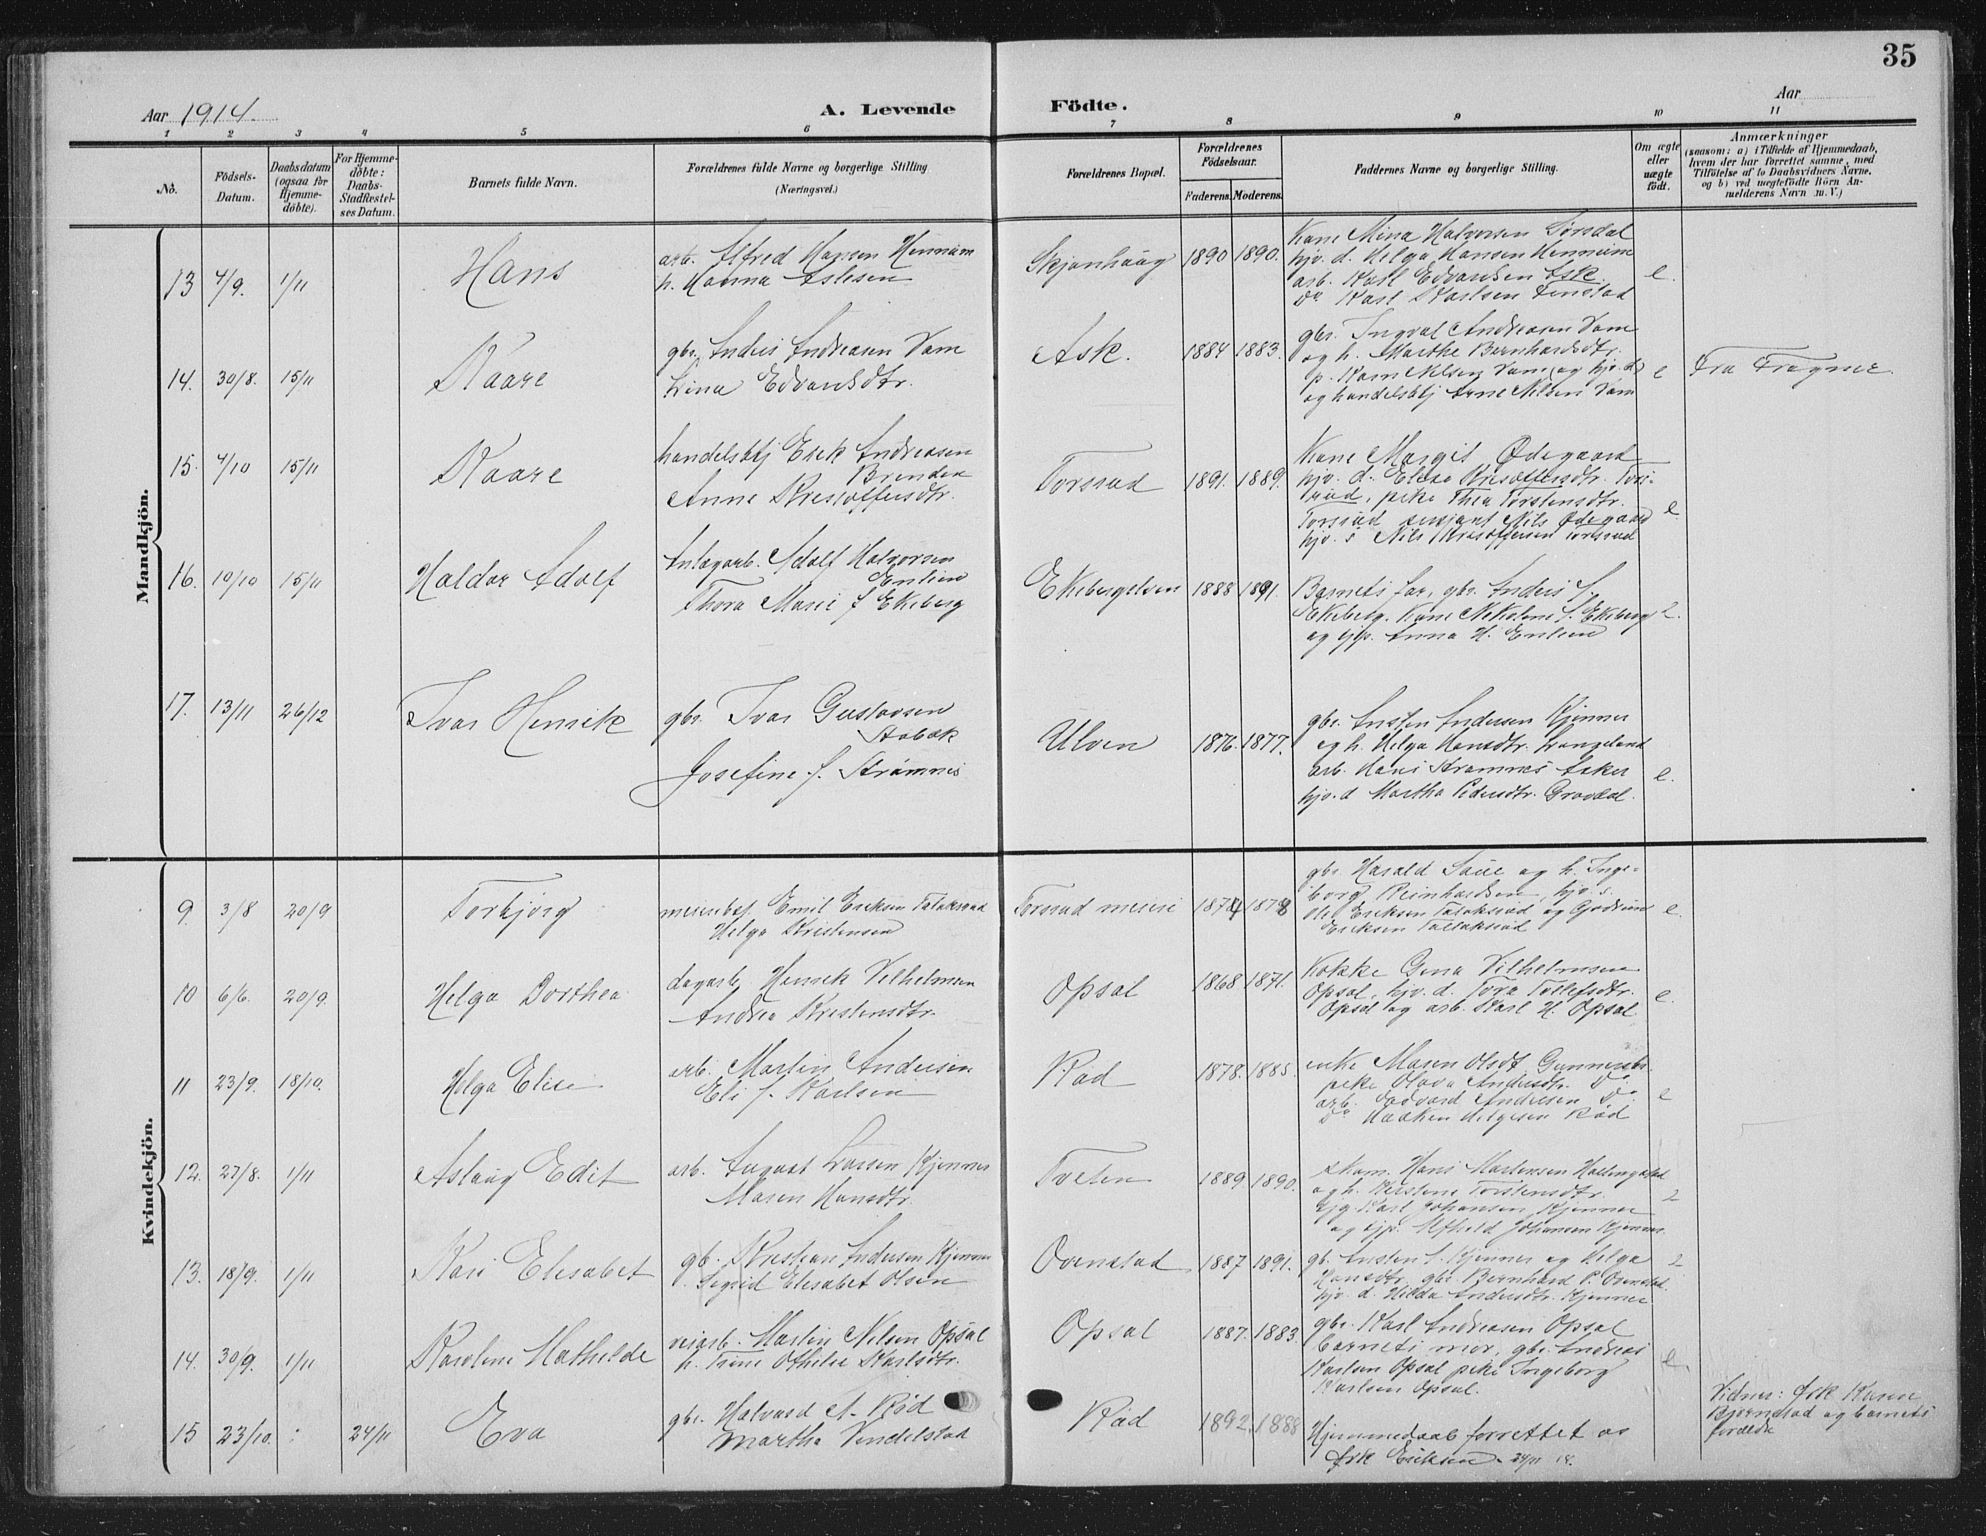 35
Aar 1914. A. Levende Födte. Aar
1 2 3 4 5 6 7 8 9 10 11
No.
Födsels-Datum.
Daabsdatum (ogsaa for Hjemme-döbte).
For Hjemme-döbte: Daabs-Stadfæstel-ses Datum.
Barnets fulde Navn.
Forældrenes fulde Navne og borgerlige Stilling (Næringsvei.)
Forældrenes Bopæl.
Forældrenes Födselsaar.
Faderens. Moderens.
Faddernes Navne og borgerlige Stilling.
Om ægte eller uægte födt.
Anmærkninger
(saasom: a) i Tilfælde af Hjemmedaab, hvem der har forrettet samme, med Tilföielse af to Daabsvidners Navne, og b) ved uægtefödte Börn An-melderens Navn m. V.)
Mandkjön.
13 4/9. 1/11 Hans
arb. Alfred Hansen Hennum
h. Hanna Aslesen
Skjønhaug 1890 1890.
Kone Mina Halvorsen Sørsdal
hjv. d. Helga Hansen Hennum
arb. Karl Edvardsen Ask
Do Karl Karlsen Finstad
e.
14. 30/8. 15/11 Kaare
gbr. Anders Andreasen Vam
Lina Edvardsdtr.
Ask. 1884 1883.
gbr. Ingval Andreasen Vam
og h. Marthe Bernhardsdtr.
p. Karen Nilsen Vam (og hjv. d)
og handelsbtj Arne Nilsen Vam
e Fra Frogner.
15. 4/10 15/11 Kaare
handelsbtj Erik Andreasen
Brenden
Anne Kristoffersdtr.
Torsrud 1891. 1889.
Kone Margit Ødegaard
hjv. d. Elise Kristoffersdtr. Tors-
rud, pike Thea Torstensdtr.
Torsrud sersjant Nils Ødegaard
hjv. s Nils Kristoffersen Torsrud
e.
16. 10/10 15/11 Haldor Adolf
Anlægarb. Adolf Halvorsen
Enlien
Thora Marie f Ekeberg
Ekebergelven 1888 1891.
Barnets far, gbr. Anders J.
Ekeberg, Kone Nikoline J. Ekeberg
og pp. Anna H. Enlien
2.
17. 13/11 26/12 Ivar Henrik
gbr. Ivar Gustavsen
Stabæk
Josefine f. Strømnes
Ulven 1876. 1877.
gbr. Ansten Andersen Kjenner
og h. Helga Hansdtr. Langeland
arb. Hans Strømnes Asker
hjv. d Martha Pedersdtr. Gravdal.
e.
Kvindekjön.
9. 3/8 20/9 Torbjørg
meieribst. Emil Eriksen Tallaksrud
Helga Kristensen
Torsrud meieri 1874 1878
gbr. Harald Saue og h. Inge-
borg Reinhardsen, hjv. s.
Ole Eriksen Tallaksrud og Gudrun
Eriksen Tallaksrud
e.
10 6/6. 20/9. Helga Dorthea
dagarb. Henrik Vilhelmsen
Andrea Kristensdtr.
Opsal 1868 1871.
Kokke Gina Vilhelmsen
Opsal, hjv. d. Tora Tollefsdtr.
Opsal og arb. Karl H. Opsal
e.
11 23/9. 18/10. Helga Elise
arb. Martin Andersen
Eli f. Karlsen
Rød 1878. 1885.
enke Maren Olsdt. Gunnersbr.
pike Olava Andersdtr. Do
arb. Edvard Andersen Do.
Do Haaken Helgesen Rød
e
12. 27/8. 1/11 Aslaug Edit
arb. August Larsen Kjenner
Maren Hansdtr.
Tveten 1889. 1890.
skom. Hans Martinsen
og h. Kirstine Torstensdtr.
Karl Johansen Kjenner
og pp. Alfhild Johansen Kjenner
2
13. 18/9. 1/11 Kari Elisabet
gb. Kristian Andersen Kjenner
Sigrid Elisabet Olsen
Ovenstad 1887 1891.
gb. Ansten A. Kjenner og Helga
Hansdtr. gbr. Bernhard P. Ovenstad.
hjv. d. Hilda Andersdtr. Kjenner
2
14. 30/9. 1/11 Karoline Mathilde
veiarb. Martin Nilsen Opsal
h. Trine Othilie Karlsdtr.
Opsal 1887. 1883.
gbr. Karl Andreasen Opsal
barnets mor, gbr. Andreas
Karlsen Opsal pike Ingeborg
Karlsen Opsal.
e.
15 23/10. 24/11 Eva
gbr. Halvard A. Rød
Martha Vindelstad
Rød 1892. 1888
Hjemmedaab forrettet av
frk Eriksen. 24/11 14.
Vidner: frk Karen
Bjørnstad og barnets
foreldre